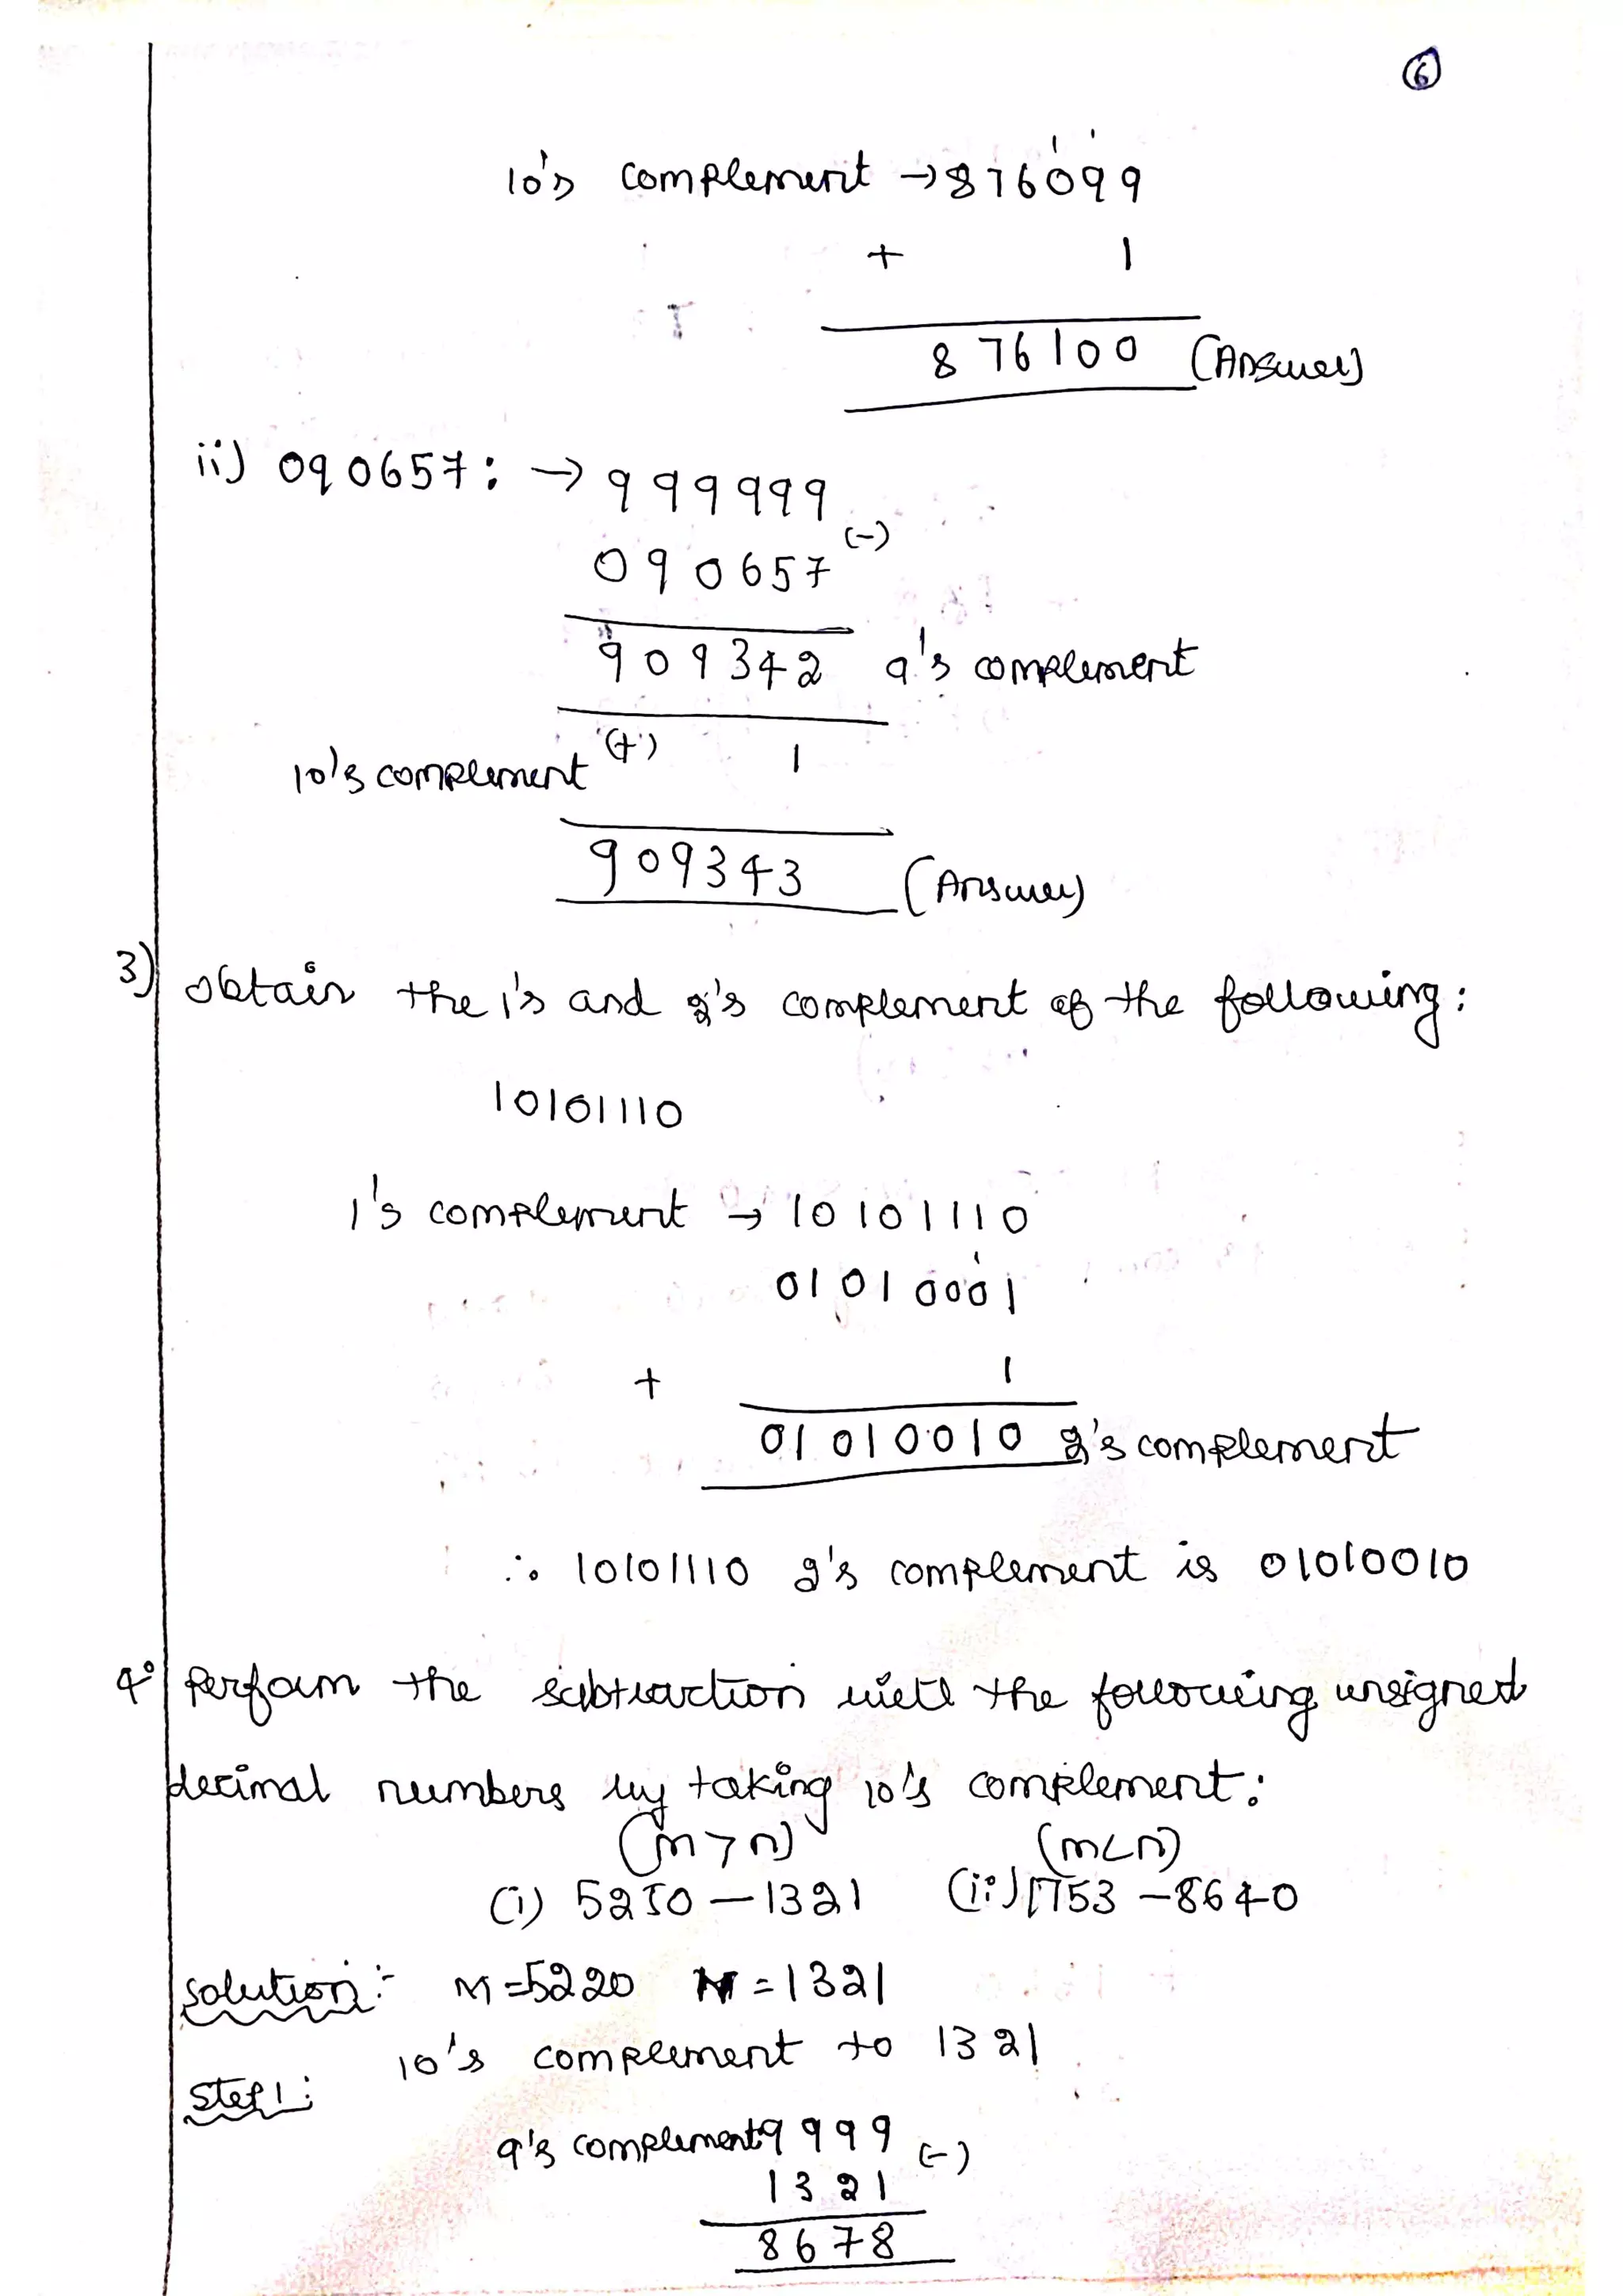 6
10's complement → 876099
+ 1
876100 (Answer)
ii) 090657: → 999999
(-)
090657
909342 9's complement
10's complement (+) 1
909343 (Answer)
3) obtain the 1's and 2's complement of the following:
10101110
1's complement → 10101110
01010001
+ 1
01010010 2's complement
∴ 10101110 2's complement is 01010010
4. Perform the subtraction with the following unsigned
decimal numbers by taking 10's complement:
(m>n) (m<n)
(i) 5250 – 1321 (ii) 1753 – 8640
Solution:- M=5220 N=1321
10's complement to 1321
Step 1:
9's complement 9999 (-)
1321
8678